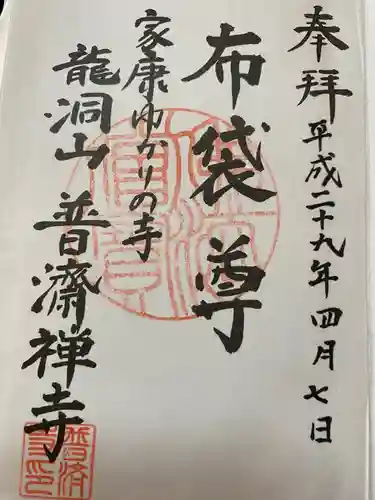 奉拝
平成二十九年四月七日
布袋尊
家康ゆかりの寺
龍洞山
普濟禅寺
普済
寺印